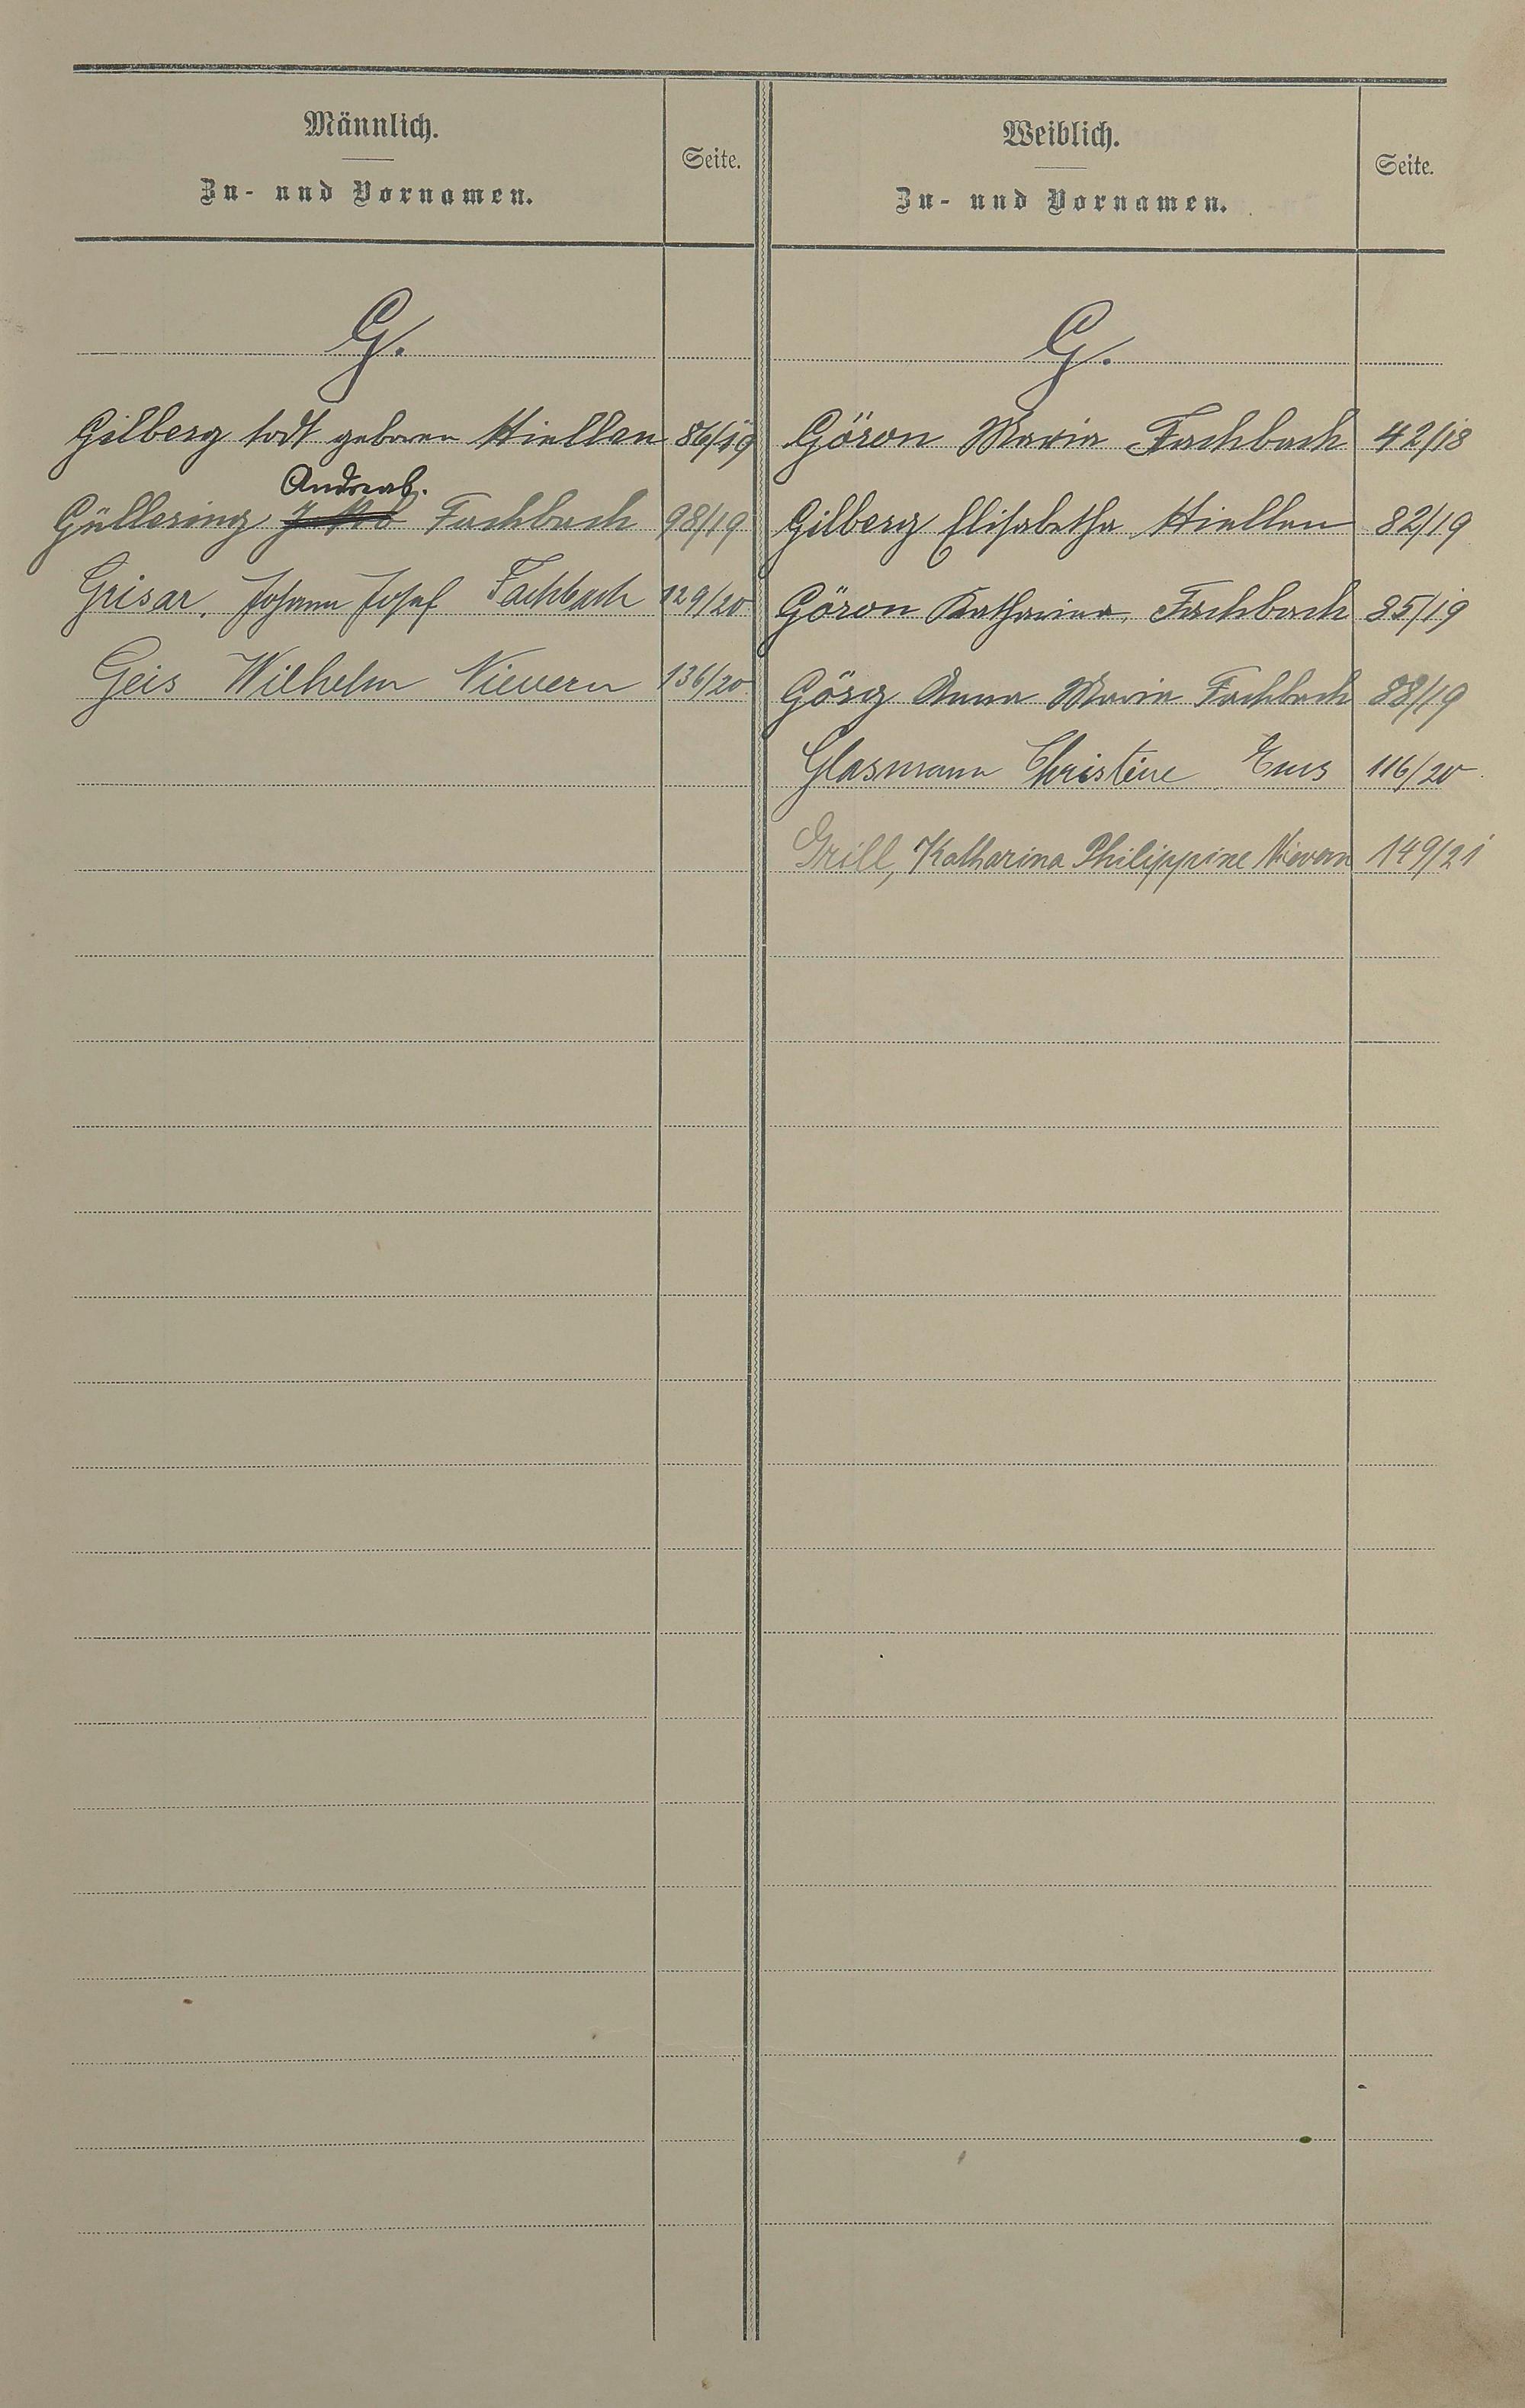 Männlich.
Zu- und Vornamen.
Seite.
G.
Gilberg todt geboren Miellen 86/19
Andreas.
Güllering Jakob Fachbach 98/19
Grisar, Johann Josef Fachbach 129/20
Geis Wilhelm Nievern 136/20
Weiblich.
Zu- und Vornamen.
Seite.
G.
Göron Maria Fachbach 42/18
Gilberg Elisabetha Miellen 82/19
Göron Katharina, Fachbach 85/19
Görg Anna Maria Fachbach 88/19
Glasmann Christine Ems 116/20
Grill, Katharina Philippine Nievern 149/21